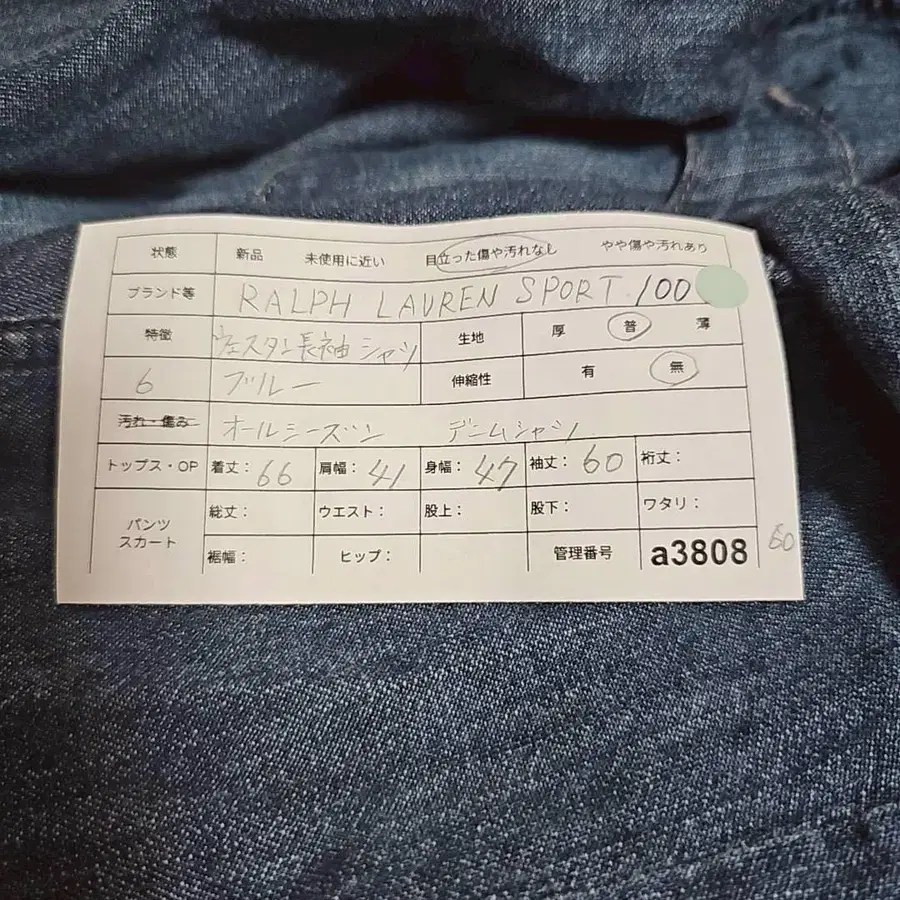 状態 新品 未使用に近い 目立った傷や汚れなし やや傷や汚れあり
ブランド等 RALPH LAUREN SPORT 100
特徴 ウェスタン長袖シャツ 生地 厚 普 薄
6 ブルー 伸縮性 有 無
汚れ・傷み オールシーズン デニムシャツ
トップス・OP 着丈: 66 肩幅: 41 身幅: 47 袖丈: 60 裄丈:
パンツ スカート 総丈: ウエスト: 股上: 股下: ワタリ:
裾幅: ヒップ: 管理番号 a3808